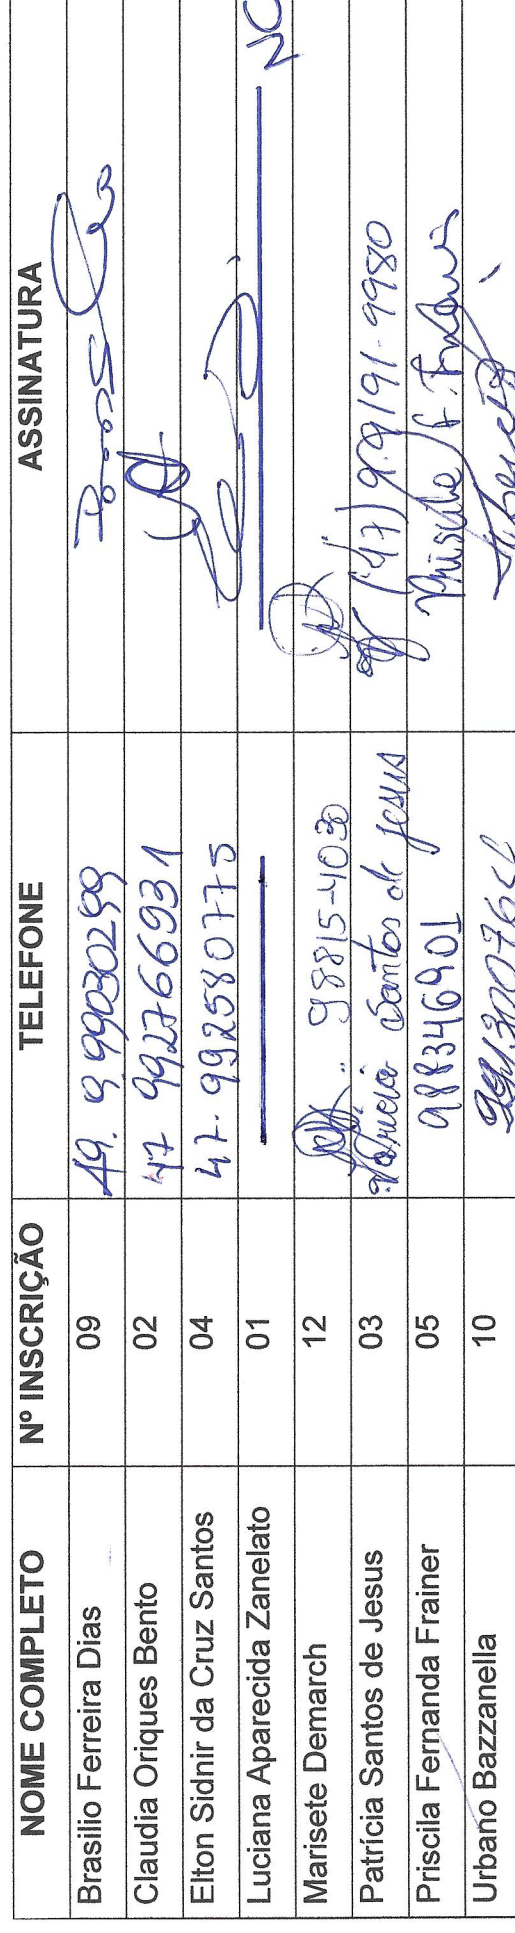 NOME COMPLETO Nº INSCRIÇÃO TELEFONE ASSINATURA
Brasilio Ferreira Dias 09 49. 9 99030299
Claudia Oriques Bento 02 47 992766931
Elton Sidnir da Cruz Santos 04 47. 992580775
Luciana Aparecida Zanelato 01 NC
Marisete Demarch 12 98815-4030
Patrícia Santos de Jesus 03 Patricia Santos de Jesus (47) 9.9191-9980
Priscila Fernanda Frainer 05 988346901 Priscila F. Frainer
Urbano Bazzanella 10